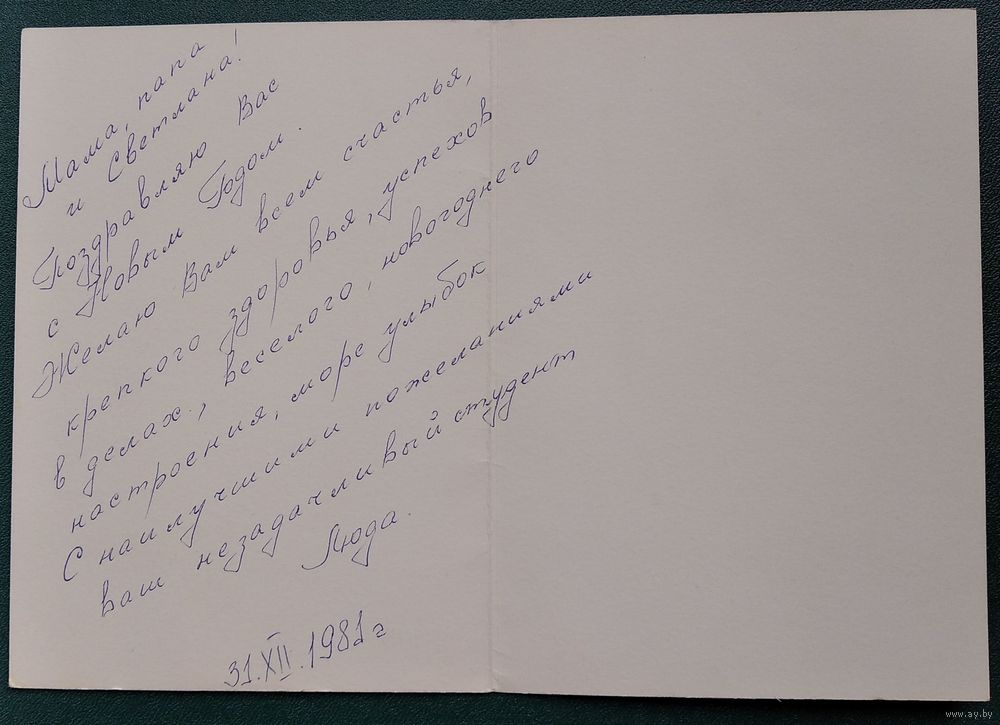 Мама, папа
и Светлана!
Поздравляю Вас
с Новым Годом.
Желаю Вам всем счастья,
крепкого здоровья, успехов
в делах, веселого, новогоднего
настроения, море улыбок
С наилучшими пожеланиями
ваш незадачливый студент
Люда.
31.XII.1981г
www.ay.by